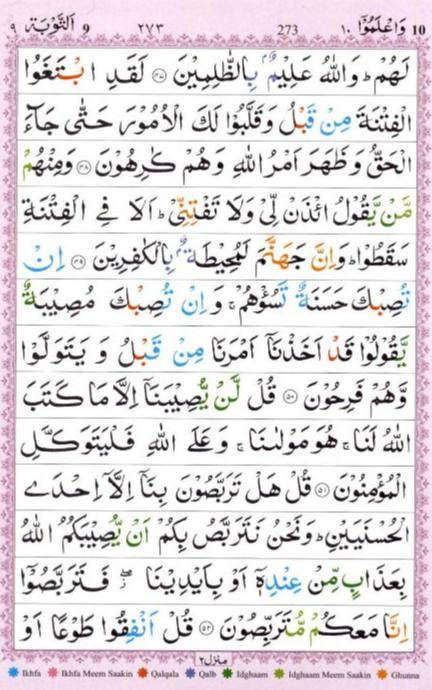 ٩ اَلتَّوْبَة 9 ٢٧٣ 273 وَاعْلَمُوْٓا ١٠ 10
لَهُمْ ؕ وَاللّٰهُ عَلِيْمٌۢ بِالظّٰلِمِيْنَ ﴿۴۷﴾ لَقَدِ ابْتَغَوُا
الْفِتْنَةَ مِنْ قَبْلُ وَقَلَّبُوْا لَكَ الْاُمُوْرَ حَتّٰى جَآءَ
الْحَقُّ وَظَهَرَ اَمْرُ اللّٰهِ وَهُمْ كٰرِهُوْنَ ﴿۴۸﴾ وَمِنْهُمْ
مَّنْ يَّقُوْلُ ائْذَنْ لِّىْ وَلَا تَفْتِنِّىْ ؕ اَلَا فِى الْفِتْنَةِ
سَقَطُوْا ؕ وَاِنَّ جَهَنَّمَ لَمُحِيْطَةٌۢ بِالْكٰفِرِيْنَ ﴿۴۹﴾ اِنْ
تُصِبْكَ حَسَنَةٌ تَسُؤْهُمْ ۚ وَاِنْ تُصِبْكَ مُصِيْبَةٌ
يَّقُوْلُوْا قَدْ اَخَذْنَاۤ اَمْرَنَا مِنْ قَبْلُ وَ يَتَوَلَّوْا
وَّهُمْ فَرِحُوْنَ ﴿۵۰﴾ قُلْ لَّنْ يُّصِيْبَنَاۤ اِلَّا مَا كَتَبَ
اللّٰهُ لَنَا ۚ هُوَ مَوْلٰىنَا ۚ وَعَلَى اللّٰهِ فَلْيَتَوَكَّلِ
الْمُؤْمِنُوْنَ ﴿۵۱﴾ قُلْ هَلْ تَرَبَّصُوْنَ بِنَاۤ اِلَّاۤ اِحْدَى
الْحُسْنَيَيْنِ ؕ وَنَحْنُ نَتَرَبَّصُ بِكُمْ اَنْ يُّصِيْبَكُمُ اللّٰهُ
بِعَذَابٍ مِّنْ عِنْدِهٖۤ اَوْ بِاَيْدِيْنَا ۖ فَتَرَبَّصُوْۤا
اِنَّا مَعَكُمْ مُّتَرَبِّصُوْنَ ﴿۵۲﴾ قُلْ اَنْفِقُوْا طَوْعًا اَوْ
منزل ٢
Ikhfa Ikhfa Meem Saakin Qalqala Qalb Idghaam Idghaam Meem Saakin Ghunna